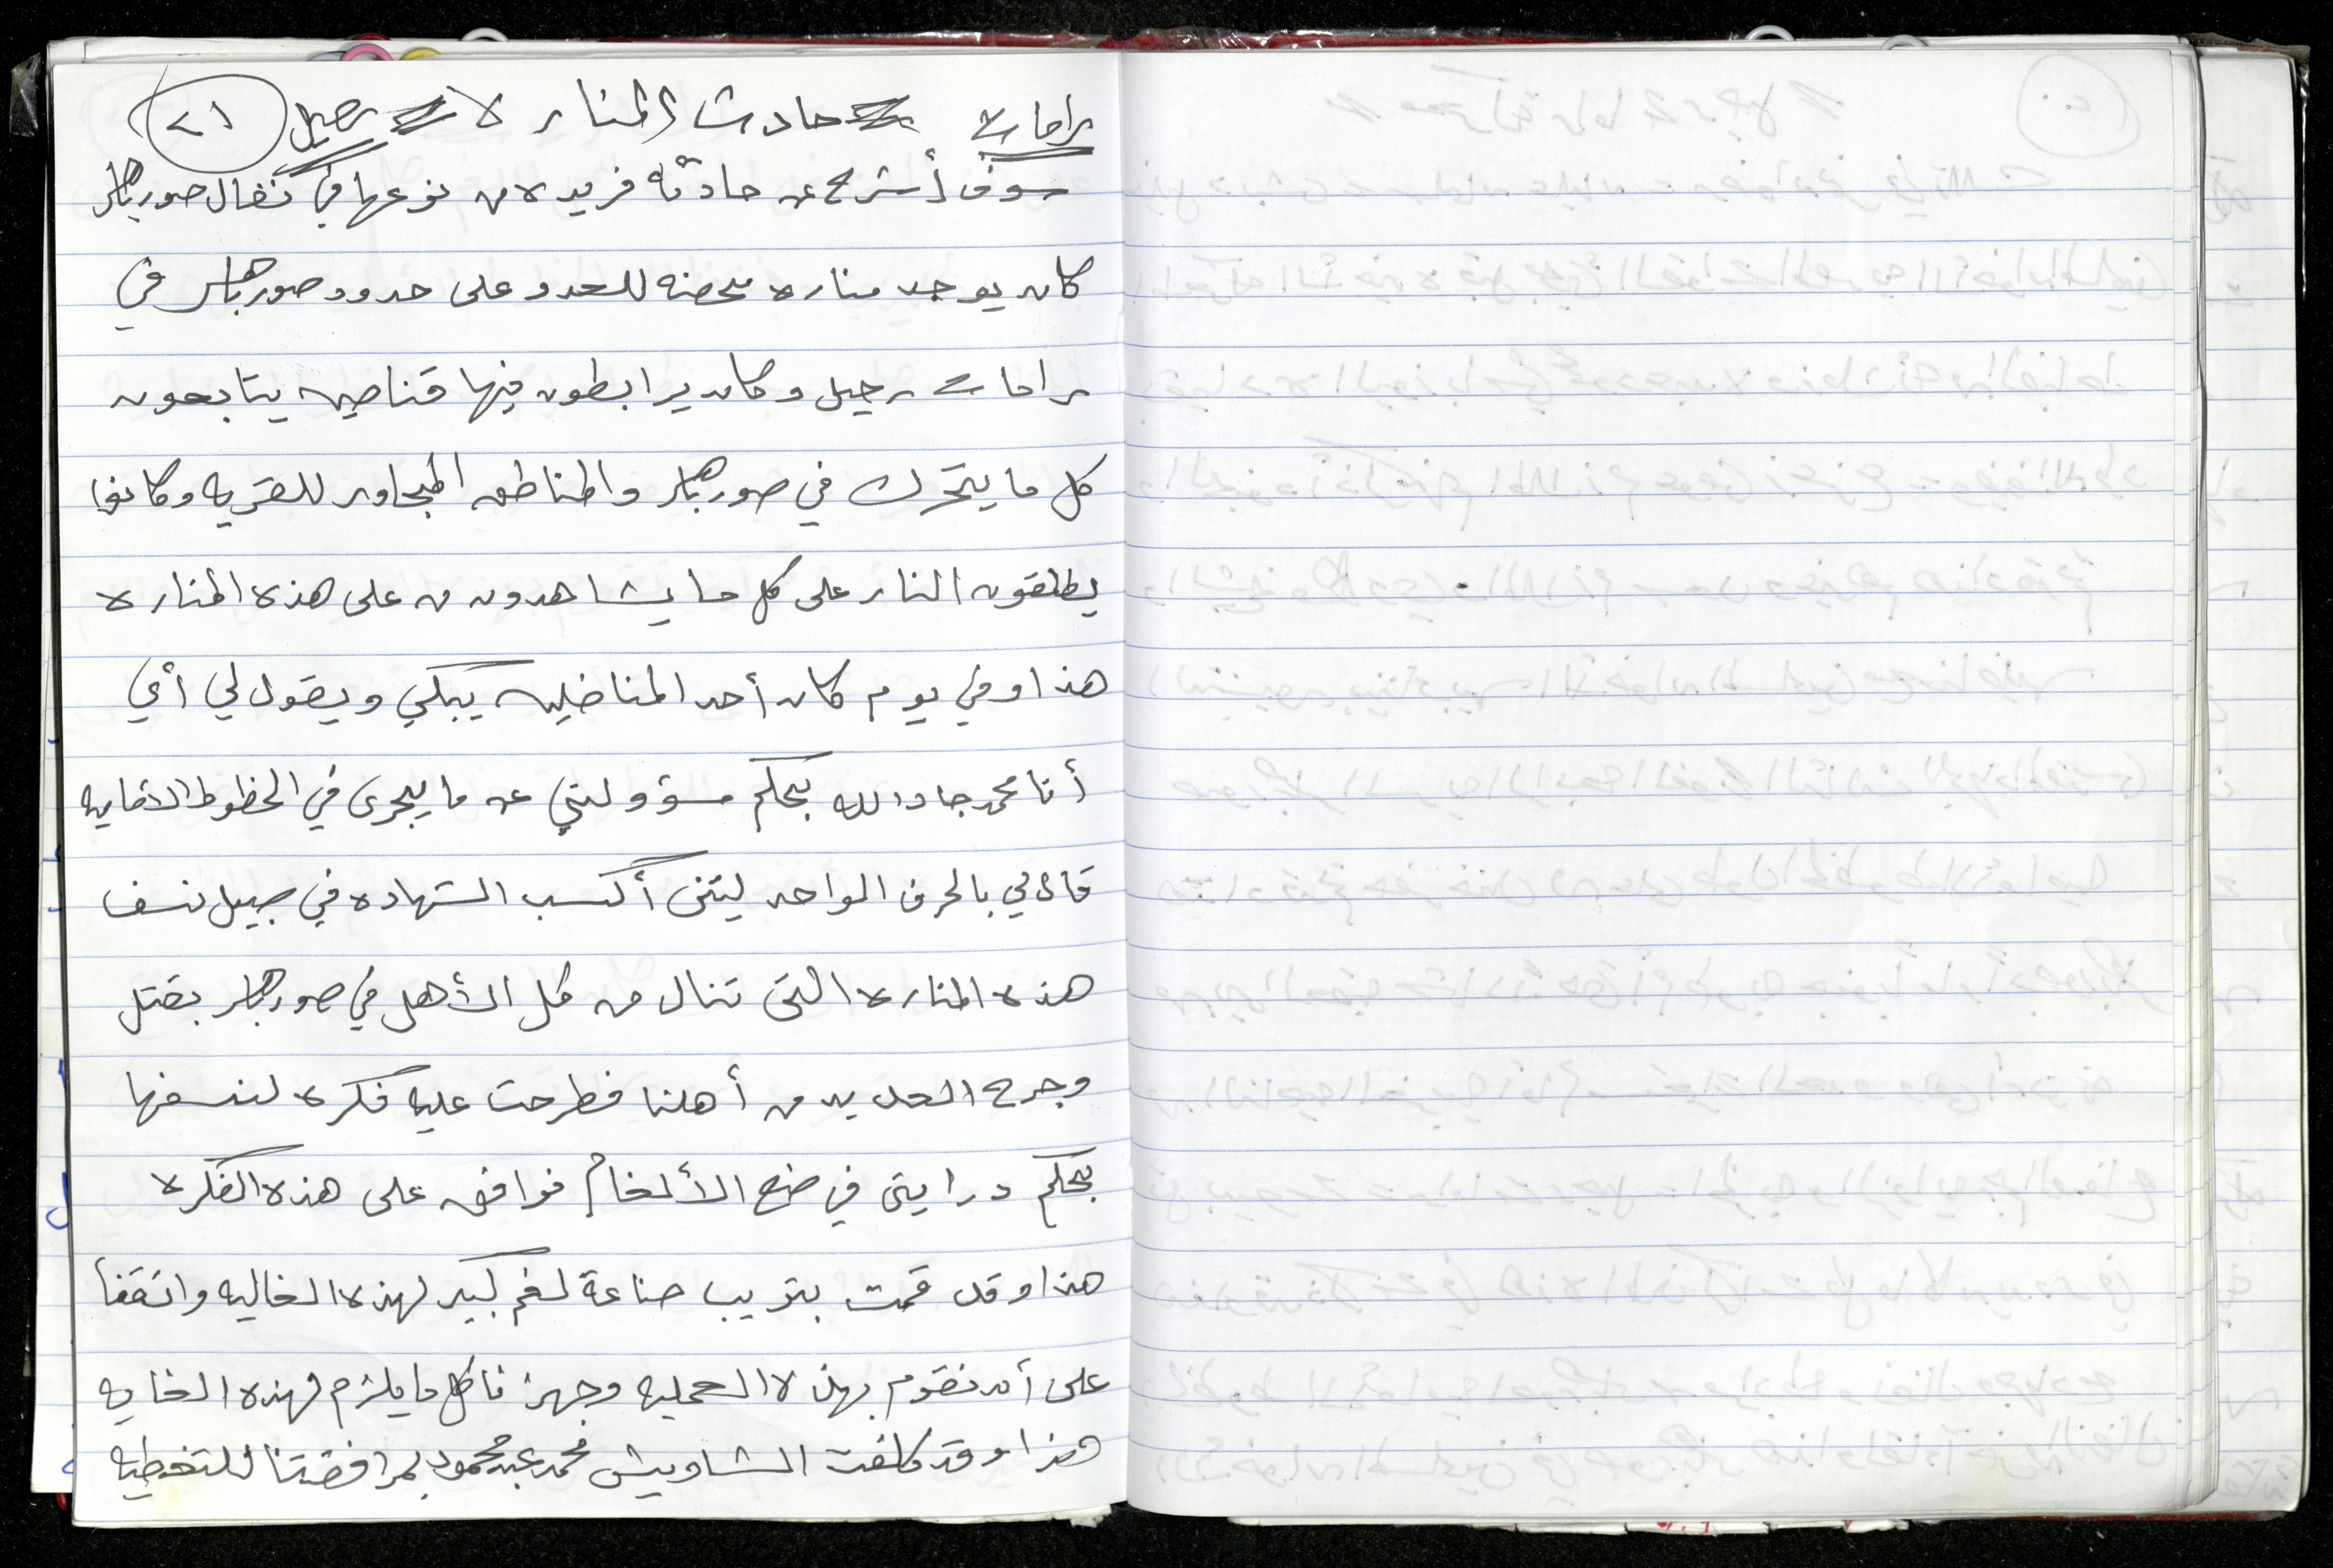 رامات حادث المناره رحيل ٢١
سوف أشرح عن حادثه فريده من نوعها في نضال صورباهر
كان يوجد مناره محصنه للعدو على حدود صورباهر في
رامات رحيل وكان يرابطون فيها قناصين يتابعون
كل ما يتحرك في صورباهر والمناطق المجاور للقريه وكانوا
يطلقون النار على كل ما يشاهدون من على هذه المناره
هذا وفي يوم كان أحد المناضلين يبكي ويقول لي أي
أنا محمد جادالله بحكم مسؤولتي عن ما يجرى في الخطوط الامايه
قال لي بالحرف الواحد ليتنى أكسب الشهاده في سبيل نسف
هذه المناره التى تنال من كل الأهل في صورباهر بقتل
وجرح العديد من أهلنا فطرحت عليه فكره لنسفها
بحكم درايتى في صنع الألغام فوافق على هذه الفكره
هذا وقد قمت بترتيب صناعة لغم كبير لهذه الغاليه واتفقنا
على أن نقوم بهذه العمليه وجهزنا كل ما يلزم لهذه الغايه
هذا وقد كلفت الشاويش محمد عبد محمود لمرافقتنا للتغطيه